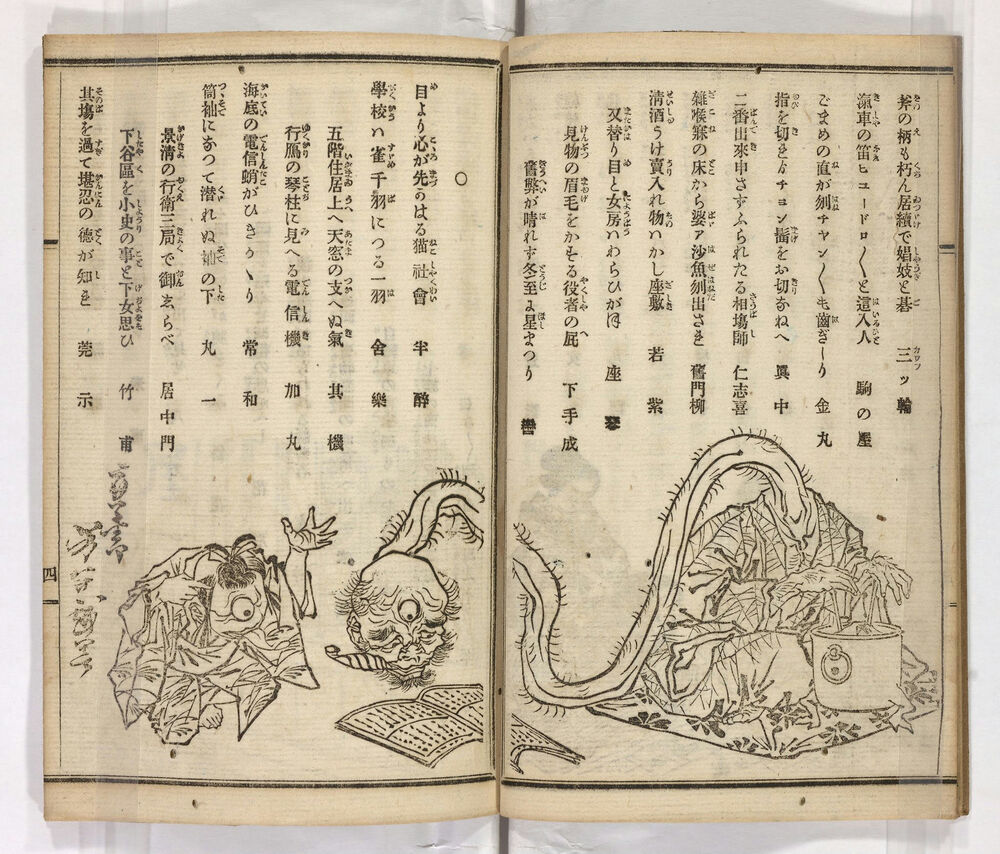 斧の柄も朽ん居續で娼妓と碁　三ッ輪
滊車の笛ヒユードロ〱と這入人　駒の屋
ごまめの直が刻チヤン〱も齒ぎしり　金丸
指を切る方チヨン髷をお切なね　眞中
二番出來申さずふられたる相塲師　仁志喜
雜喉寐の床から婆ア沙魚刎出され　舊門柳
淸酒うけ賣入れ物いかし座敷　若紫
又替り目と女房いわらひがほ　座琴
見物の眉毛をかせる役者の屁　下手成
舊弊が晴れず冬至よ星まつり
〇
目より心が先づはる猫社會　半醉
學校ハ雀千羽につる一羽　舍樂
五階住居上へ天窓の支へぬ氣　其機
行鴈の琴柱に見へる電信機　加丸
海底の電信蛸がひきかゝり　常和
筒袖になつて潜れぬ袖の下　丸一
景淸の行衛三局で御しらべ　居中門
下谷區を小史の事と下女思ひ　竹甫
其塲を過て堪忍の德が知れ　莞示
四